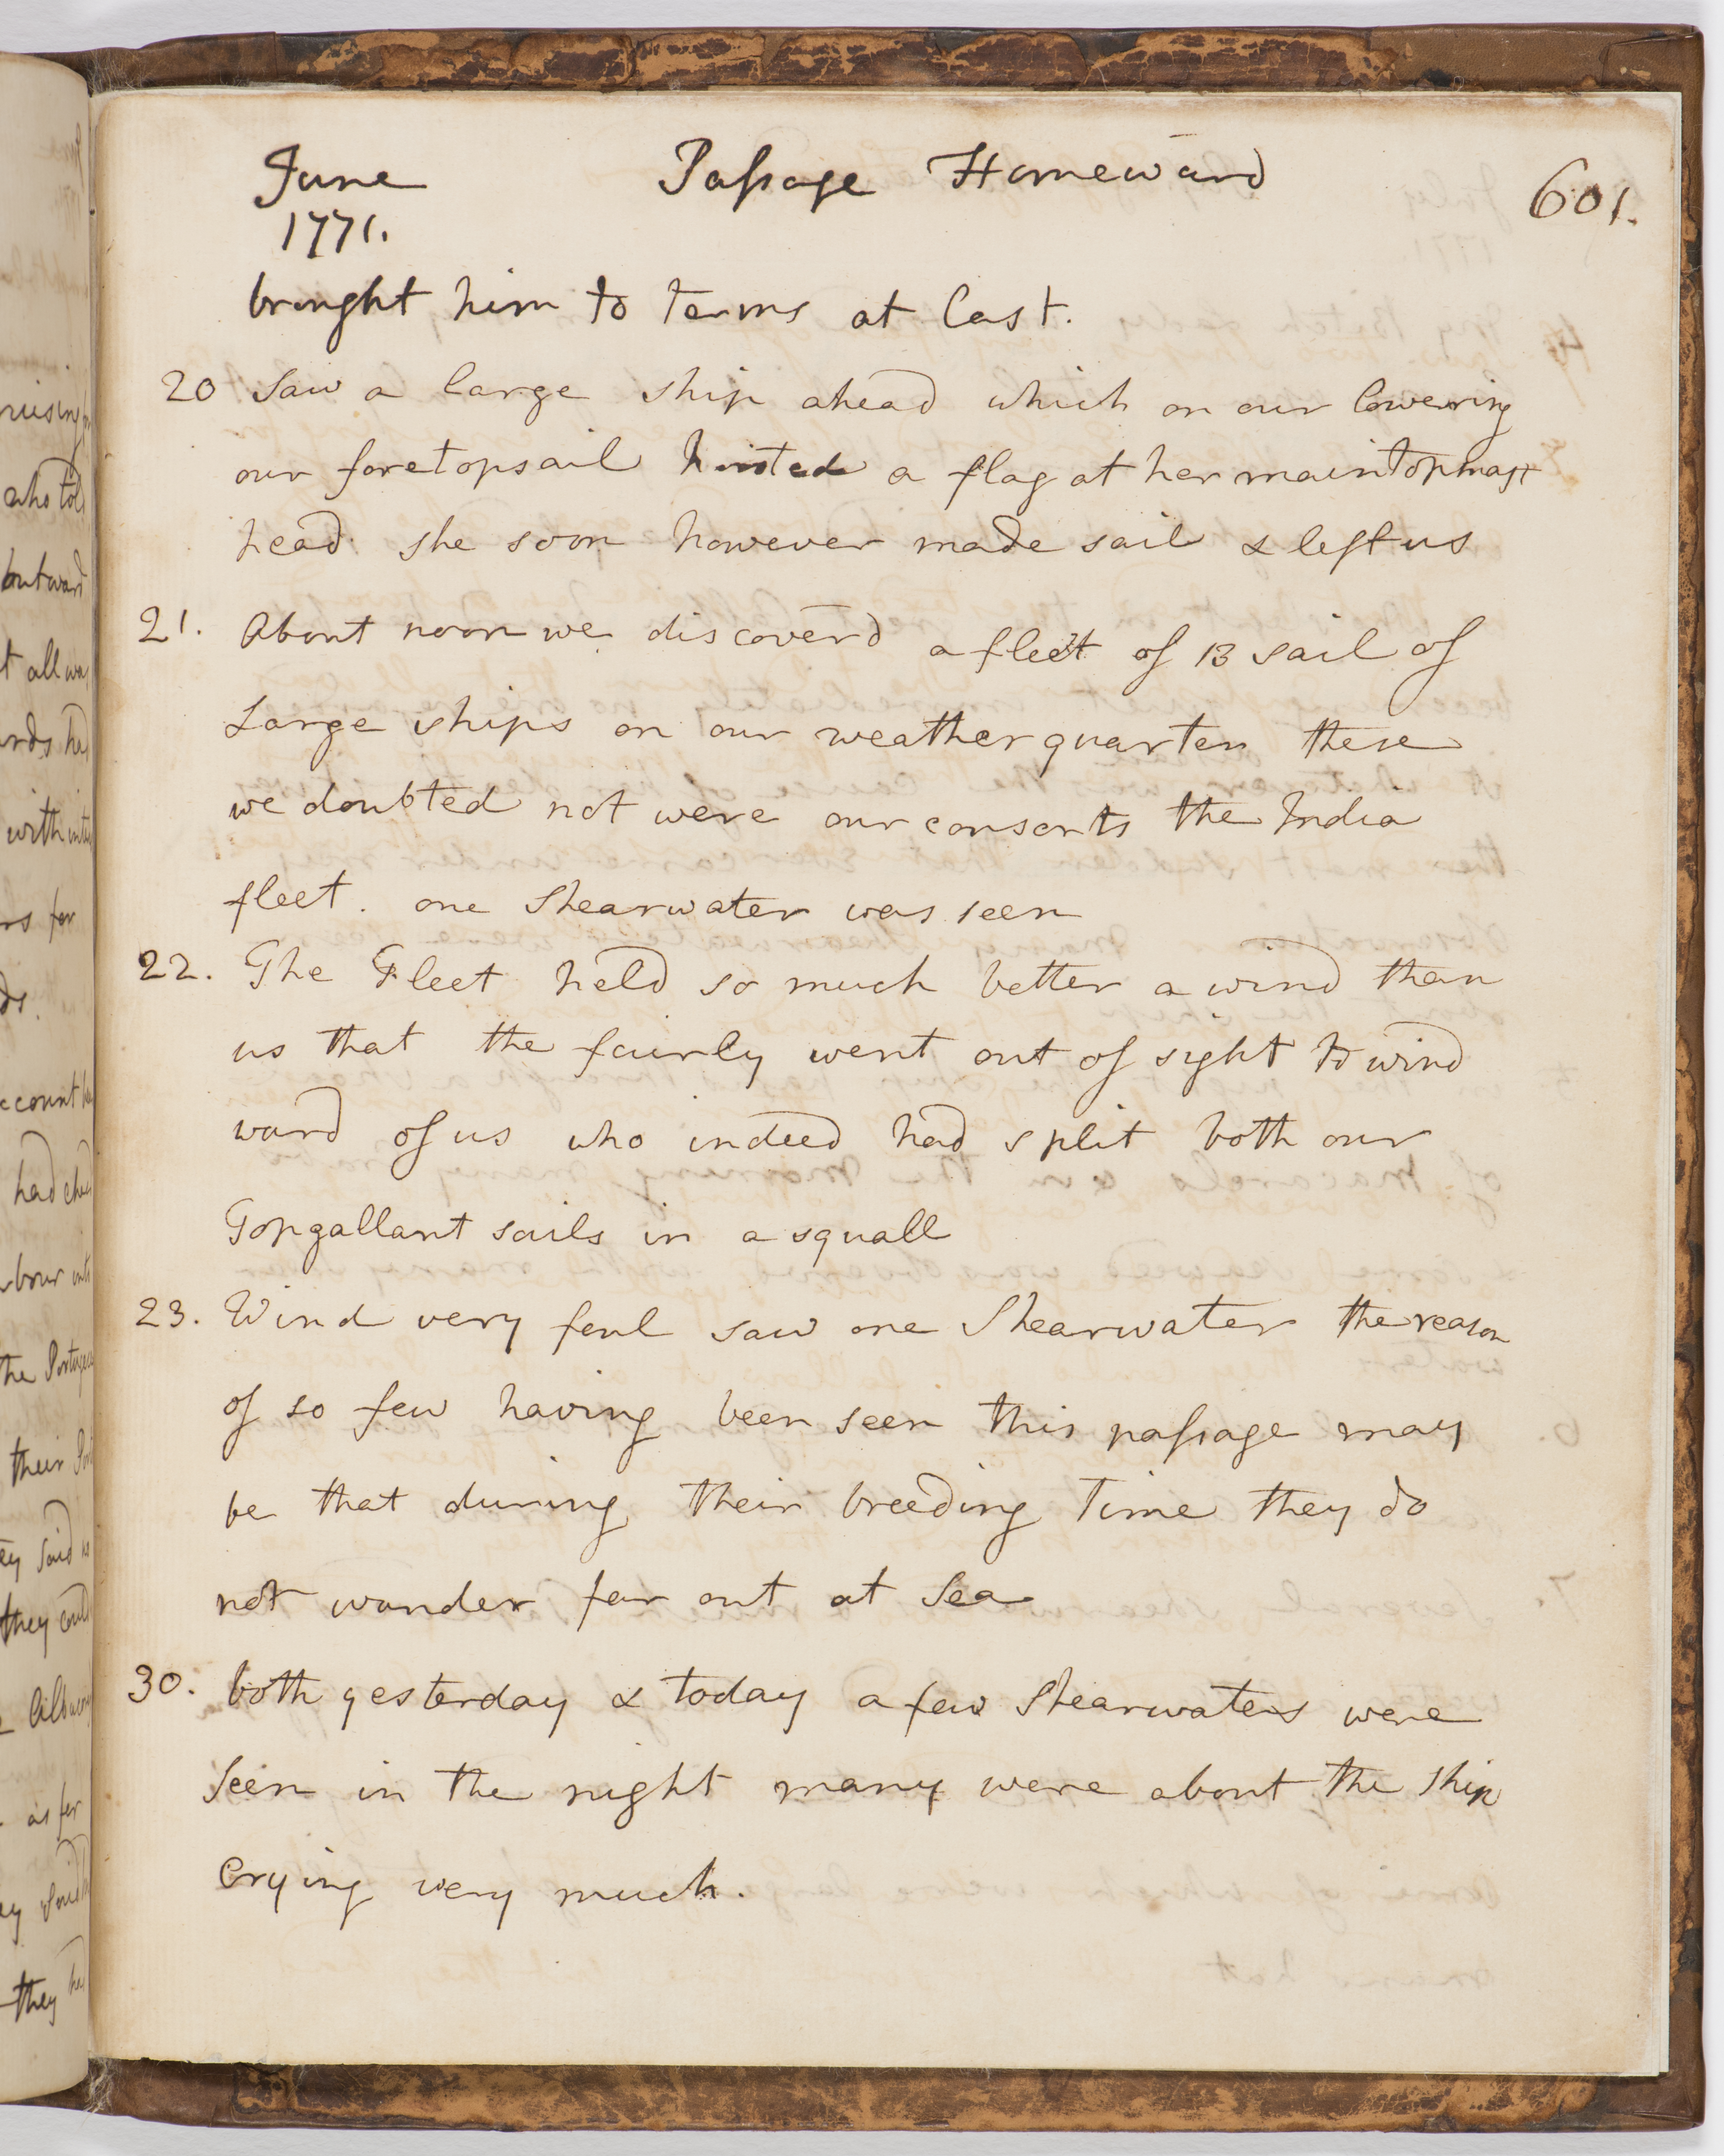 June Passage Homeward 601.
1771.
brought him to terms at last.
20 Saw a large ship ahead which on our lowering
our foretopsail hoisted a flag at her maintopmast
head she soon however made sail & left us
21. About noon we discoverd a fleet of 13 sail of
Large ships on our weather quarter these
we doubted not were our consorts the India
fleet. one Shearwater was seen
22. The Fleet held so much better a wind than
us that the fairly went out of sight to wind
ward of us who indeed had split both our
Topgallant sails in a squall
23. Wind very foul saw one Shearwater the reason
of so few having been seen this passage may
be that during their breeding Time they do
not wander far out at Sea
30. both yesterday & today a few Shearwaters were
Seen in the night many were about the ship
Crying very much.
who told
outward
t all
with
rs for
ds.
had
the
their
said
they
as for
they